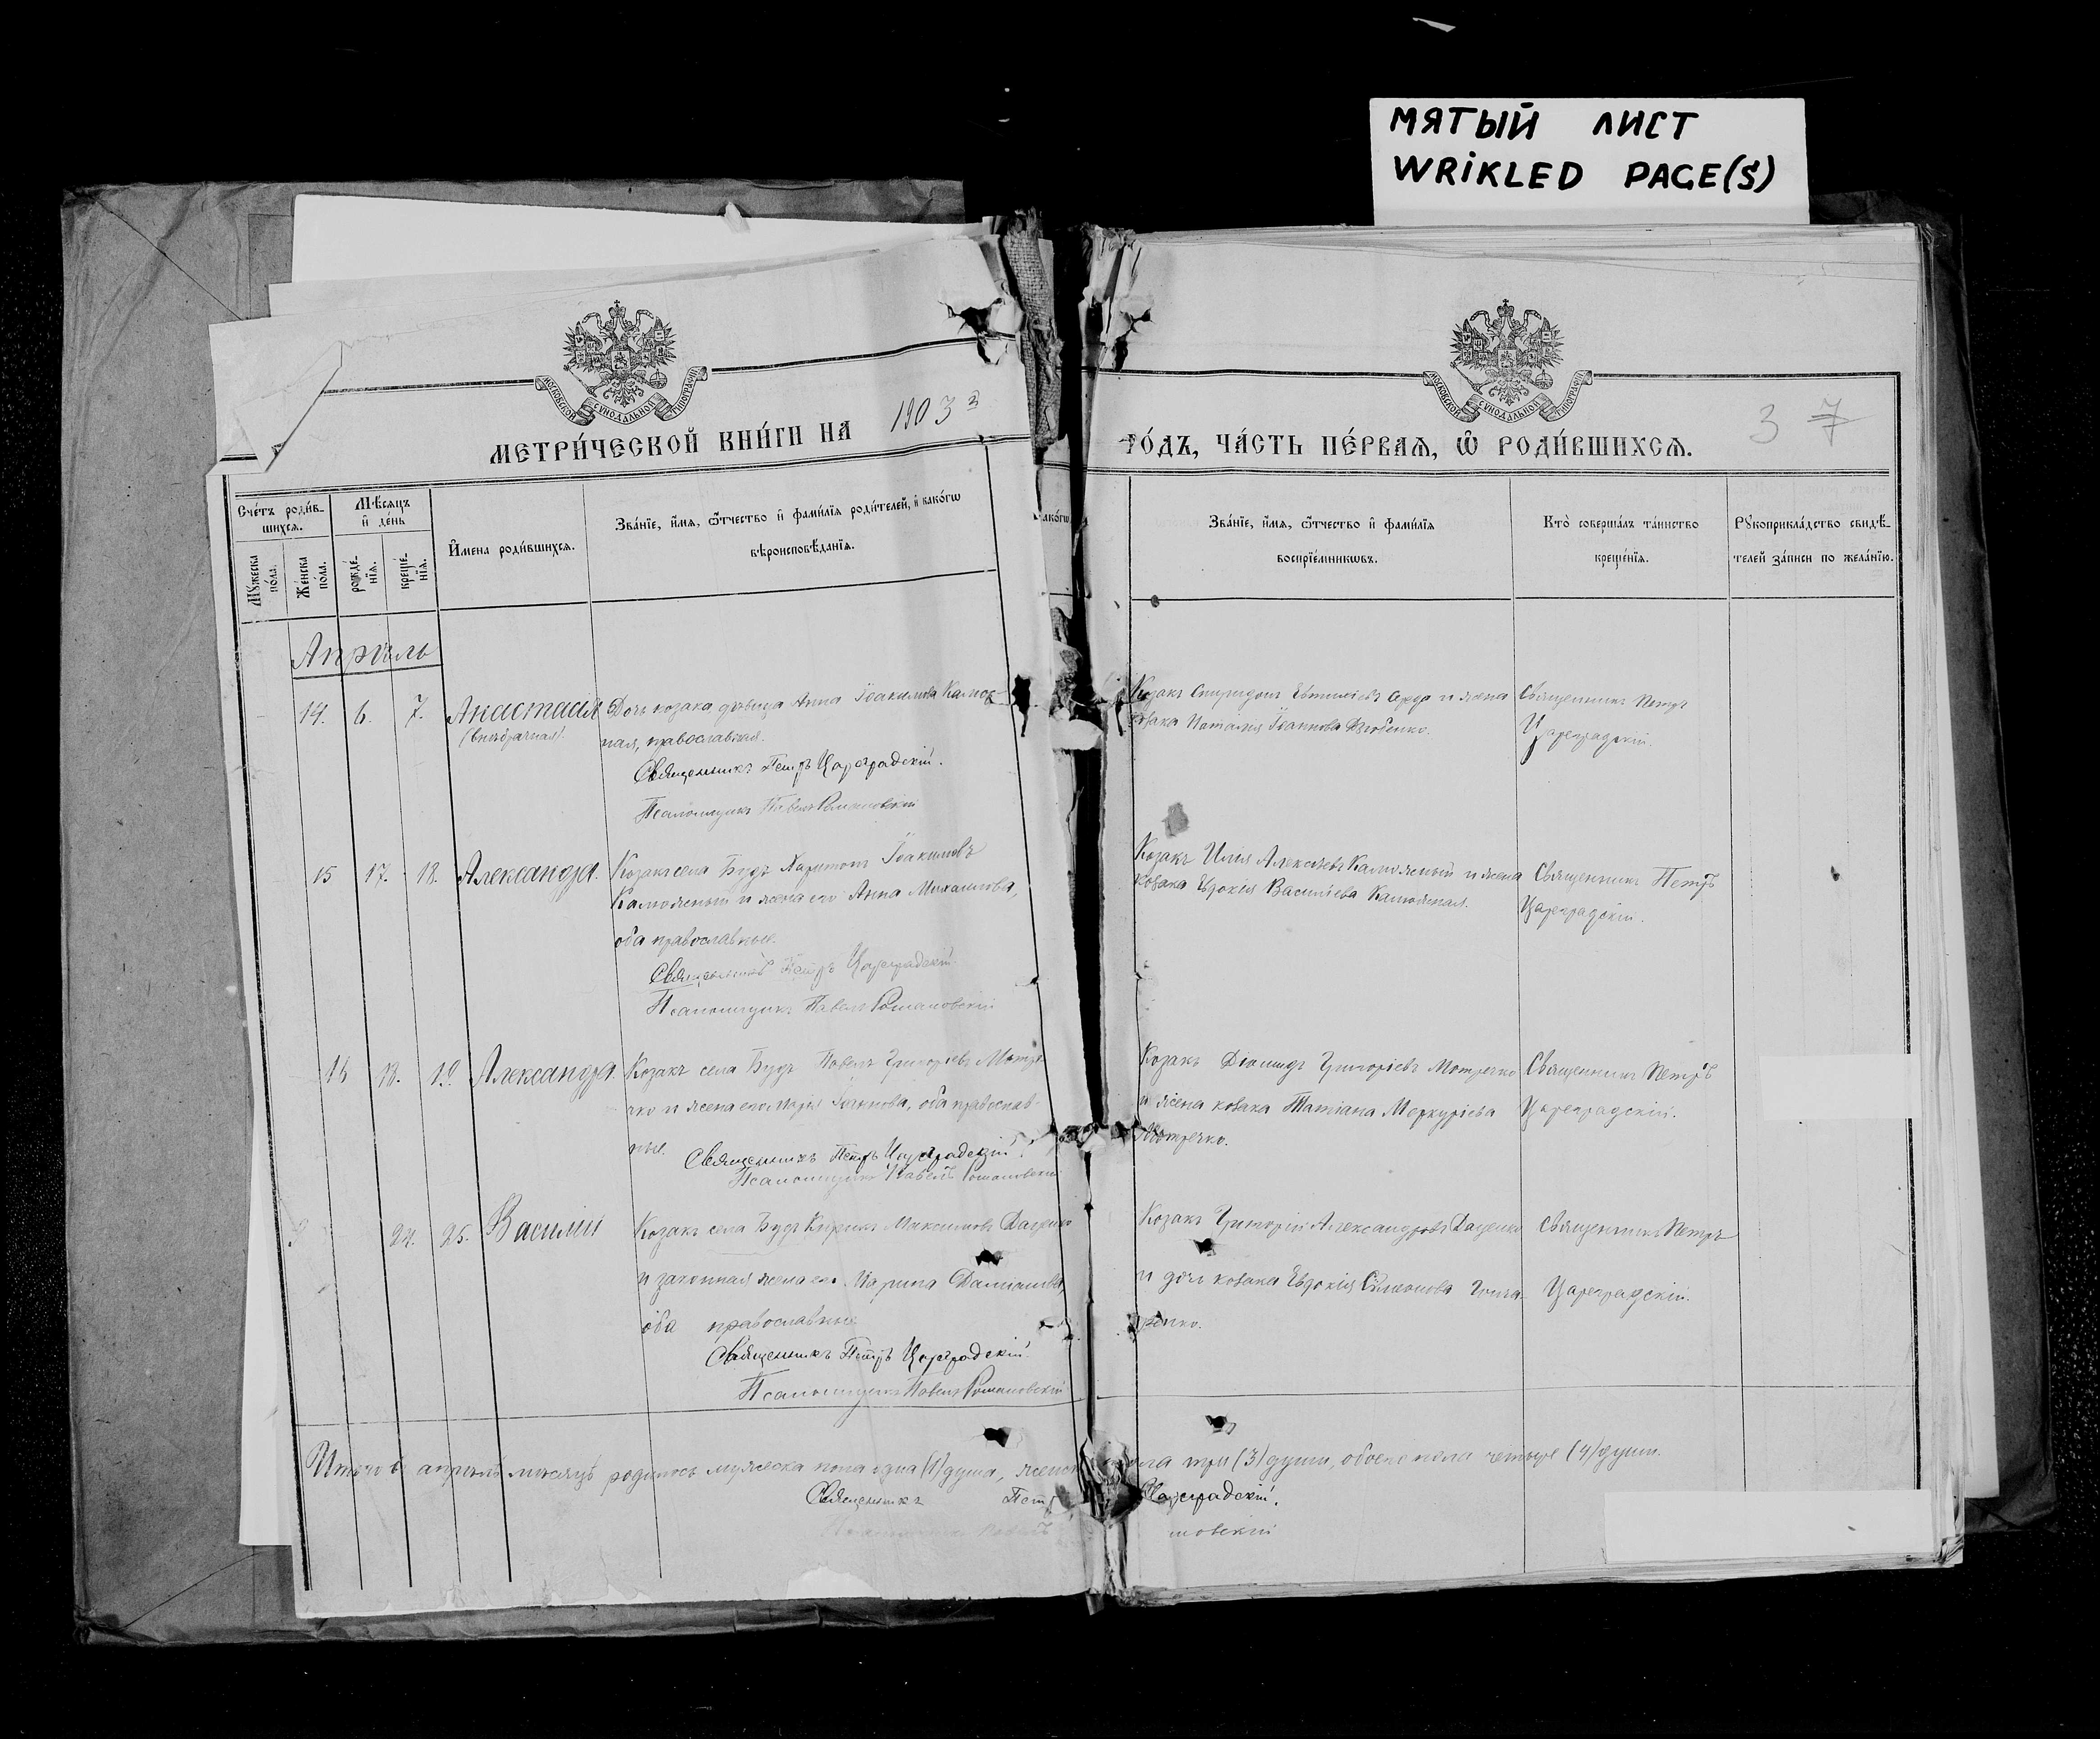 МЯТЫЙ ЛИСТ
WRIKLED PAGE(S)
МОСКОВСКОЙ СУНОДАЛЬНОЙ ТИПОГРАФІИ
МОСКОВСКОЙ СУНОДАЛЬНОЙ ТИПОГРАФІИ
МЕТРИ́ЧЕСКОЙ КНИ́ГИ НА 1903
ГО́ДЪ, ЧА́СТЬ ПЕ́РВАЯ, Ѡ РОДИ́ВШИХСЯ.
3 7
Сче́тъ роди́в-
шихся.
Мꙋ́жеска по́ла.
Же́нска по́ла.
Мѣ́сяцъ и де́нь
рожде́-нїя.
креще́-нїя.
И҆мена роди́вшихся.
Зва́нїе, и҆́мя, ѻ҆́тчество и҆ фами́лїя роди́телей, и҆ како́гѡ
вѣроисповѣ́данїя.
Зва́нїе, и҆́мя, ѻ҆́тчество и҆ фами́лїя
воспрїе́мникѡвъ.
Кто̀ соверша́лъ та́инство
креще́нїя.
Рꙋкоприкла́дство свидѣ́-
телей за́писи по жела́нїю.
Апрѣль
14. 6. 7. Анастасія
(внебрачная).
Дочь козака дѣвица Анна Іоакимова Калюж-
ная, православная.
Священникъ Петръ Цареградскій.
Псаломщикъ Павелъ Романовскій
Козакъ Спиридонъ Евтихіевъ Середа и жена
козака Наталія Іоаннова
Священникъ Петръ
Цареградскій.
15 17. 18. Александра.
Козакъ села Будъ Харитонъ Іоакимовъ
Калюжный и жена его Анна Михаилова,
оба православные.
Священникъ Петръ Цареградскій.
Псаломщикъ Павелъ Романовскій
Козакъ Илія Алексѣевъ Калюжный и жена
козака Евдокія Василіева Калюжная.
Священникъ Петръ
Цареградскій.
16 18. 19. Александра.
Козакъ села Будъ Павелъ Григоріевъ Мотре-
чко и жена его Марія Іоаннова, оба православ-
ные.
Священникъ Петръ Цареградскій.
Псаломщикъ Павелъ Романовскій
Козакъ Діомидъ Григоріевъ Мотречко
и жена козака Татіана Меркуріева
Мотречко.
Священникъ Петръ
Цареградскій.
24. 25. Василій
Козакъ села Будъ Кирикъ Максимовъ Даценко
и законная жена его Марина Даміанова,
оба православные
Священникъ Петръ Цареградскій.
Псаломщикъ Павелъ Романовскій
Козакъ Григорій Александровъ Даценко
и дочь козака Евдокія Симеонова Гонча-
ренко.
Священникъ Петръ
Цареградскій.
Итого въ апрѣлѣ мѣсяцѣ родилось мужеска пола одна (1) душа, женск пола три (3) души, обоего пола четыре (4) души.
Священникъ Петръ Цареградскій.
Псаломщикъ Павелъ мовскій